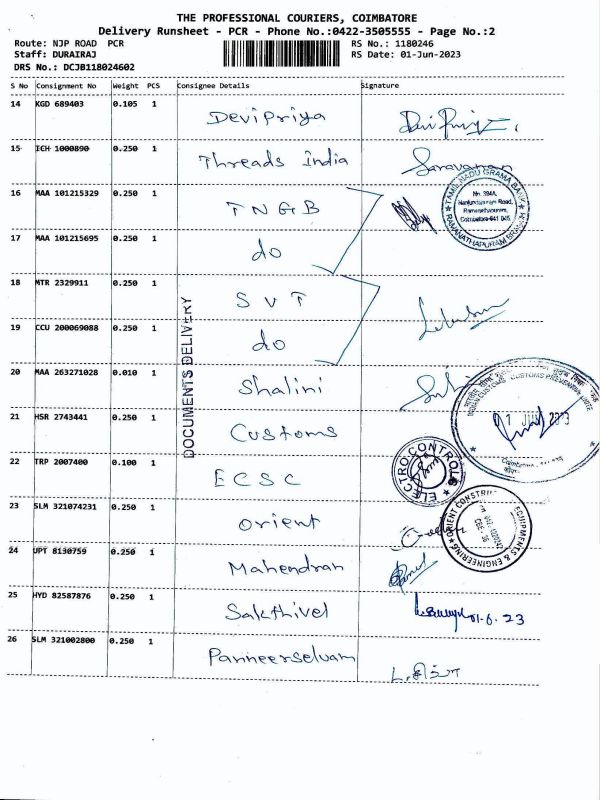 THE PROFESSIONAL COURIERS, COIMBATORE
Delivery Runsheet - PCR - Phone No.:0422-3505555 - Page No.:2
Route: NJP ROAD PCR
RS No.: 1180246
Staff: DURAIRAJ
RS Date: 01-Jun-2023
DRS No.: DCJB118024602
S No Consignment No Weight PCS Consignee Details Signature
14 KGD 689403 0.105 1 Devipriya
15 ICH 1000890 0.250 1 Threads India Saravanan
16 MAA 101215329 0.250 1 TNGB
TAMIL NADU GRAMA BANK
No. 394A,
Nanjundapuram Road,
Ramanathapuram,
Coimbatore-641 045.
RAMANATHAPURAM BRANCH
17 MAA 101215695 0.250 1 do
18 MTR 2329911 0.250 1 SVT
19 CCU 200069088 0.250 1 do
DOCUMENTS DELIVERY
20 MAA 263271028 0.010 1 Shalini
21 HSR 2743441 0.250 1 Customs
CUSTOMS PREVENTIVE UNIT
22 TRP 2007400 0.100 1 ECSC
ELECTRO CONTROLS
23 SLM 321074231 0.250 1 Orient
ORIENT CONSTRUCTION EQUIPMENTS & ENGINEERING
24 UPT 8130759 0.250 1 Mahendran
25 HYD 82587876 0.250 1 Sakthivel 01-6-23
26 SLM 321002800 0.250 1 Panneerselvam